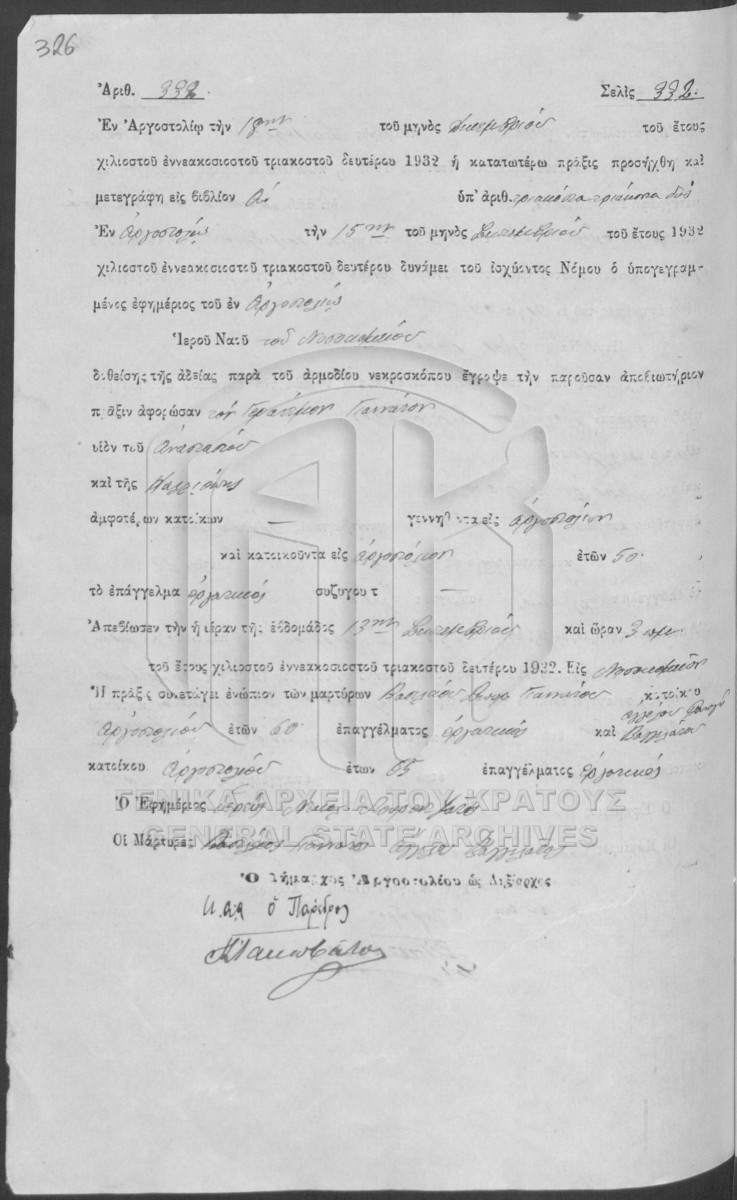 326
Ἀριθ. 332. Σελὶς 332.
Ἐν Ἀργοστολίῳ τὴν 18ην τοῦ μηνὸς Σεπτεμβρίου τοῦ ἔτους
χιλιοστοῦ ἐννεακοσιοστοῦ τριακοστοῦ δευτέρου 1932 ἡ κατατωτέρω πρᾶξις προσήχθη καὶ
μετεγράφη εἰς βιβλίον ὑπ' ἀριθ. τριακόσια τριάκοντα δύο
Ἐν Ἀργοστολίῳ τὴν 15ην τοῦ μηνὸς Σεπτεμβρίου τοῦ ἔτους 1932
χιλιοστοῦ ἐννεακοσιοστοῦ τριακοστοῦ δευτέρου δυνάμει τοῦ ἰσχύοντος Νόμου ὁ ὑπογεγραμ-
μένος ἐφημέριος τοῦ ἐν Ἀργοστολίῳ
Ἱεροῦ Ναοῦ τοῦ Νοσοκομείου
δοθείσης τῆς ἀδείας παρὰ τοῦ ἁρμοδίου νεκροσκόπου ἔγραψε τὴν παροῦσαν ἀποβιωτήριον
πρᾶξιν ἀφορῶσαν τὸν Γεράσιμον
υἱὸν τοῦ Ἀναστασίου
καὶ τῆς
ἀμφοτέρων κατοίκων — γεννηθέντα εἰς Ἀργοστόλιον
καὶ κατοικοῦντα εἰς Ἀργοστόλιον ἐτῶν 50.
τὸ ἐπάγγελμα ἐργατικός συζύγου τ —
Ἀπεβίωσεν τὴν ἡμέραν τῆς ἑβδομάδος 13ην Σεπτεμβρίου καὶ ὥραν 3
τοῦ ἔτους χιλιοστοῦ ἐννεακοσιοστοῦ τριακοστοῦ δευτέρου 1932. Εἰς Νοσοκομεῖον
Ἡ πρᾶξις συνετάγει ἐνώπιον τῶν μαρτύρων Βασιλείου κατοίκου
Ἀργοστολίου ἐτῶν 60. ἐπαγγέλματος ἐργατικός καὶ
κατοίκου Ἀργοστολίου ἐτων 65 ἐπαγγέλματος ἐργατικός
ΓΕΝΙΚΑ ΑΡΧΕΙΑ ΤΟΥ ΚΡΑΤΟΥΣ
Ὁ Ἐφημέριος
GENERAL STATE ARCHIVES
Οἱ Μάρτυρες
Ὁ Δήμαρχος Ἀργοστολίου ὡς Ληξίαρχος
ὁ Πάρεδρος